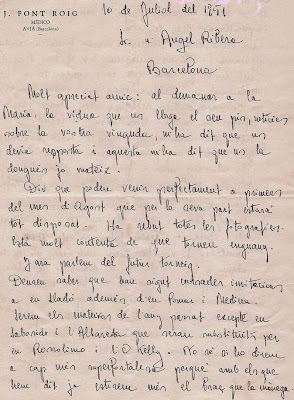 J. FONT ROIG
MÉDICO
AVIÀ (Barcelona)
10 de Juliol del 1951
Sr. a Angel Ribera
Barcelona
Molt apreciat amic: al demanar a la
Maria, la vídua que us lloga el seu pis, notícies
sobre la vostra vinguda, m'ha dit que us
devia resposta i aquesta m'ha dit que us la
dongués jo mateix.
Diu que podeu venir perfectament a primers
del mes d'Agost que per la seva part estarà
tot disposat. Ha rebut totes les fotografies.
Està molt contenta de que torneu enguany.
I ara parlem del futur torneig.
Deveu saber que han sigut cursades invitacions
a en Lladó ademés d'en Pomar i Medina.
Serem els mateixos de l'any passat excepte en
Saborido i l'Albareda que seran substituïts per
en Rossolimo i l'O'Kelly. No sé si ho direm
a cap més superfortalesa perquè amb els que
hem dit ja estirem més el braç que la màniga.